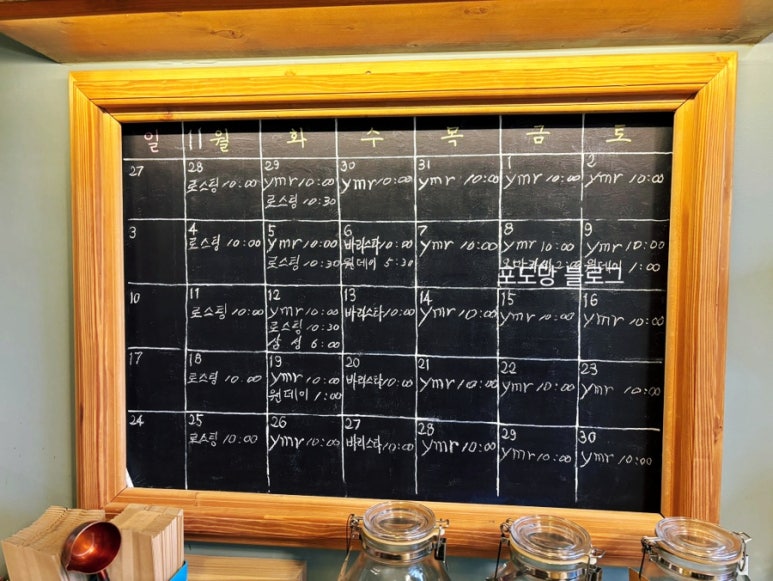 일 11월 화 수 목 금 토
27 28 29 30 31 1 2
로스팅 10:00 ymr 10:00 ymr 10:00 ymr 10:00 ymr 10:00 ymr 10:00
로스팅 10:30
3 4 5 6 7 8 9
로스팅 10:00 ymr 10:00 바리스타 10:00 ymr 10:00 ymr 10:00 ymr 10:00
로스팅 10:30 원데이 5:30 2:00 원데이 1:00
포도당 블로그
10 11 12 13 14 15 16
로스팅 10:00 ymr 10:00 바리스타 10:00 ymr 10:00 ymr 10:00 ymr 10:00
로스팅 10:30
삼성 6:00
17 18 19 20 21 22 23
로스팅 10:00 ymr 10:00 바리스타 10:00 ymr 10:00 ymr 10:00 ymr 10:00
원데이 1:00
24 25 26 27 28 29 30
로스팅 10:00 ymr 10:00 바리스타 10:00 ymr 10:00 ymr 10:00 ymr 10:00